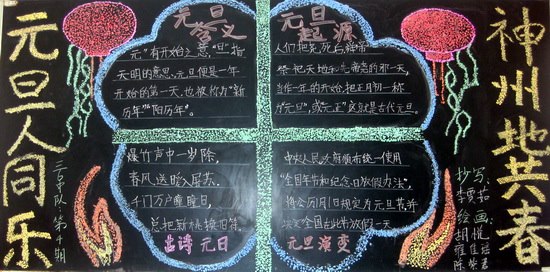 元旦人同乐
三(5)中队 第4期
元旦
含义
"元"有开始之意,"旦"指
天明的意思。元旦便是一年
开始的第一天,也被称为"新
历年""阳历年"。
元旦
起源
人们把尧死后
祭祀天地和先帝尧的那一天,
当作一年的开始,把正月初一称
为"元旦",或"元正",这就是古代元旦。
爆竹声中一岁除,
春风送暖入屠苏。
千门万户曈曈日,
总把新桃换旧符。
古诗 元日
中央人民政府颁布统一使用
"全国年节和纪念日放假办法",
将公历1月1日规定为元旦并
决定全国放假一天
元旦演变
神州地共春
抄写:
李贾茹
绘画: